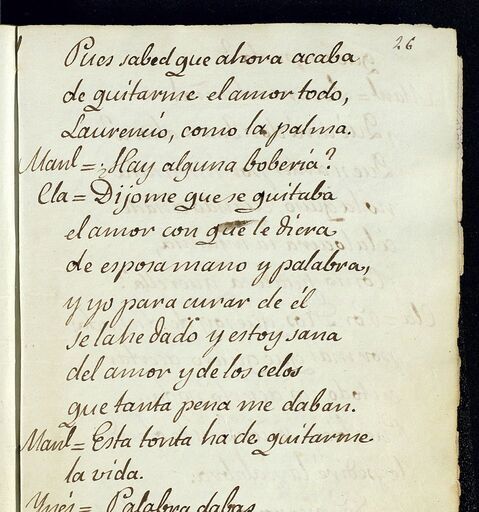 26
Pues sabed que ahora acaba
de quitarme el amor todo,
Laurencio, como la palma.
Manl = ¿Hay alguna bobería?
Cla = Dijome que se quitaba
el amor con que le diera
de esposa mano y palabra,
y yo para curar de él
se la he dado y estoy sana
del amor y de los celos
que tanta pena me daban.
Manl = Esta tonta ha de quitarme
la vida.
Ynés = Palabra dabas